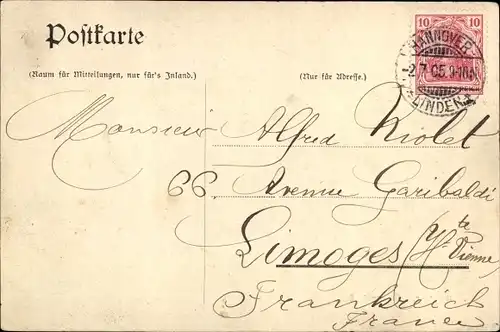 Postkarte
(Raum für Mitteilungen, nur für's Inland.)
(Nur für Adresse.)
10 10
HANNOVER
-2.7.05.9-10N
*LINDEN*
Monsieur Alfred Kiolet
66, Avenue Garibaldi
Limoges (Hte Vienne)
Frankreich
France